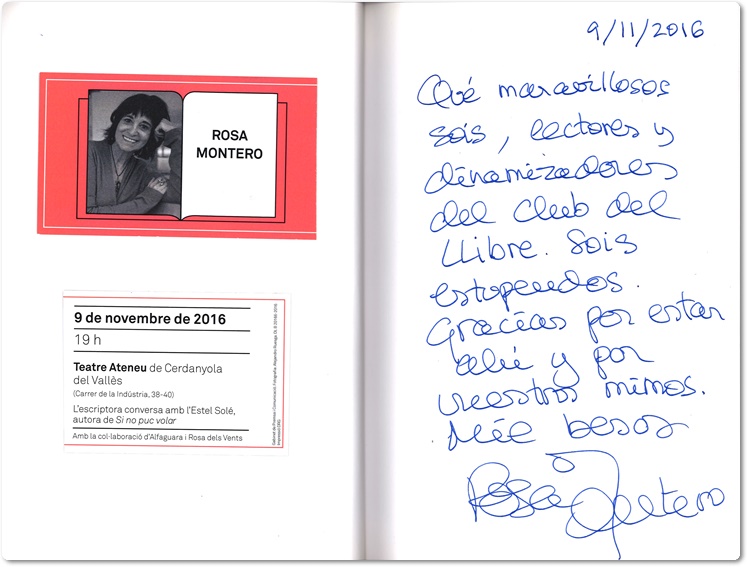 ROSA
MONTERO
9 de novembre de 2016
19 h
Teatre Ateneu de Cerdanyola
del Vallès
(Carrer de la Indústria, 38-40)
L'escriptora conversa amb l'Estel Solé,
autora de Si no puc volar
Amb la col·laboració d'Alfaguara i Rosa dels Vents
9/11/2016
Qué maravillosos
sois, lectores y
dinamizadores
del club del
Llibre. Sois
estupendos.
Gracias por estar
ahí y por
vuestros mimos.
Mil besos
Rosa Montero